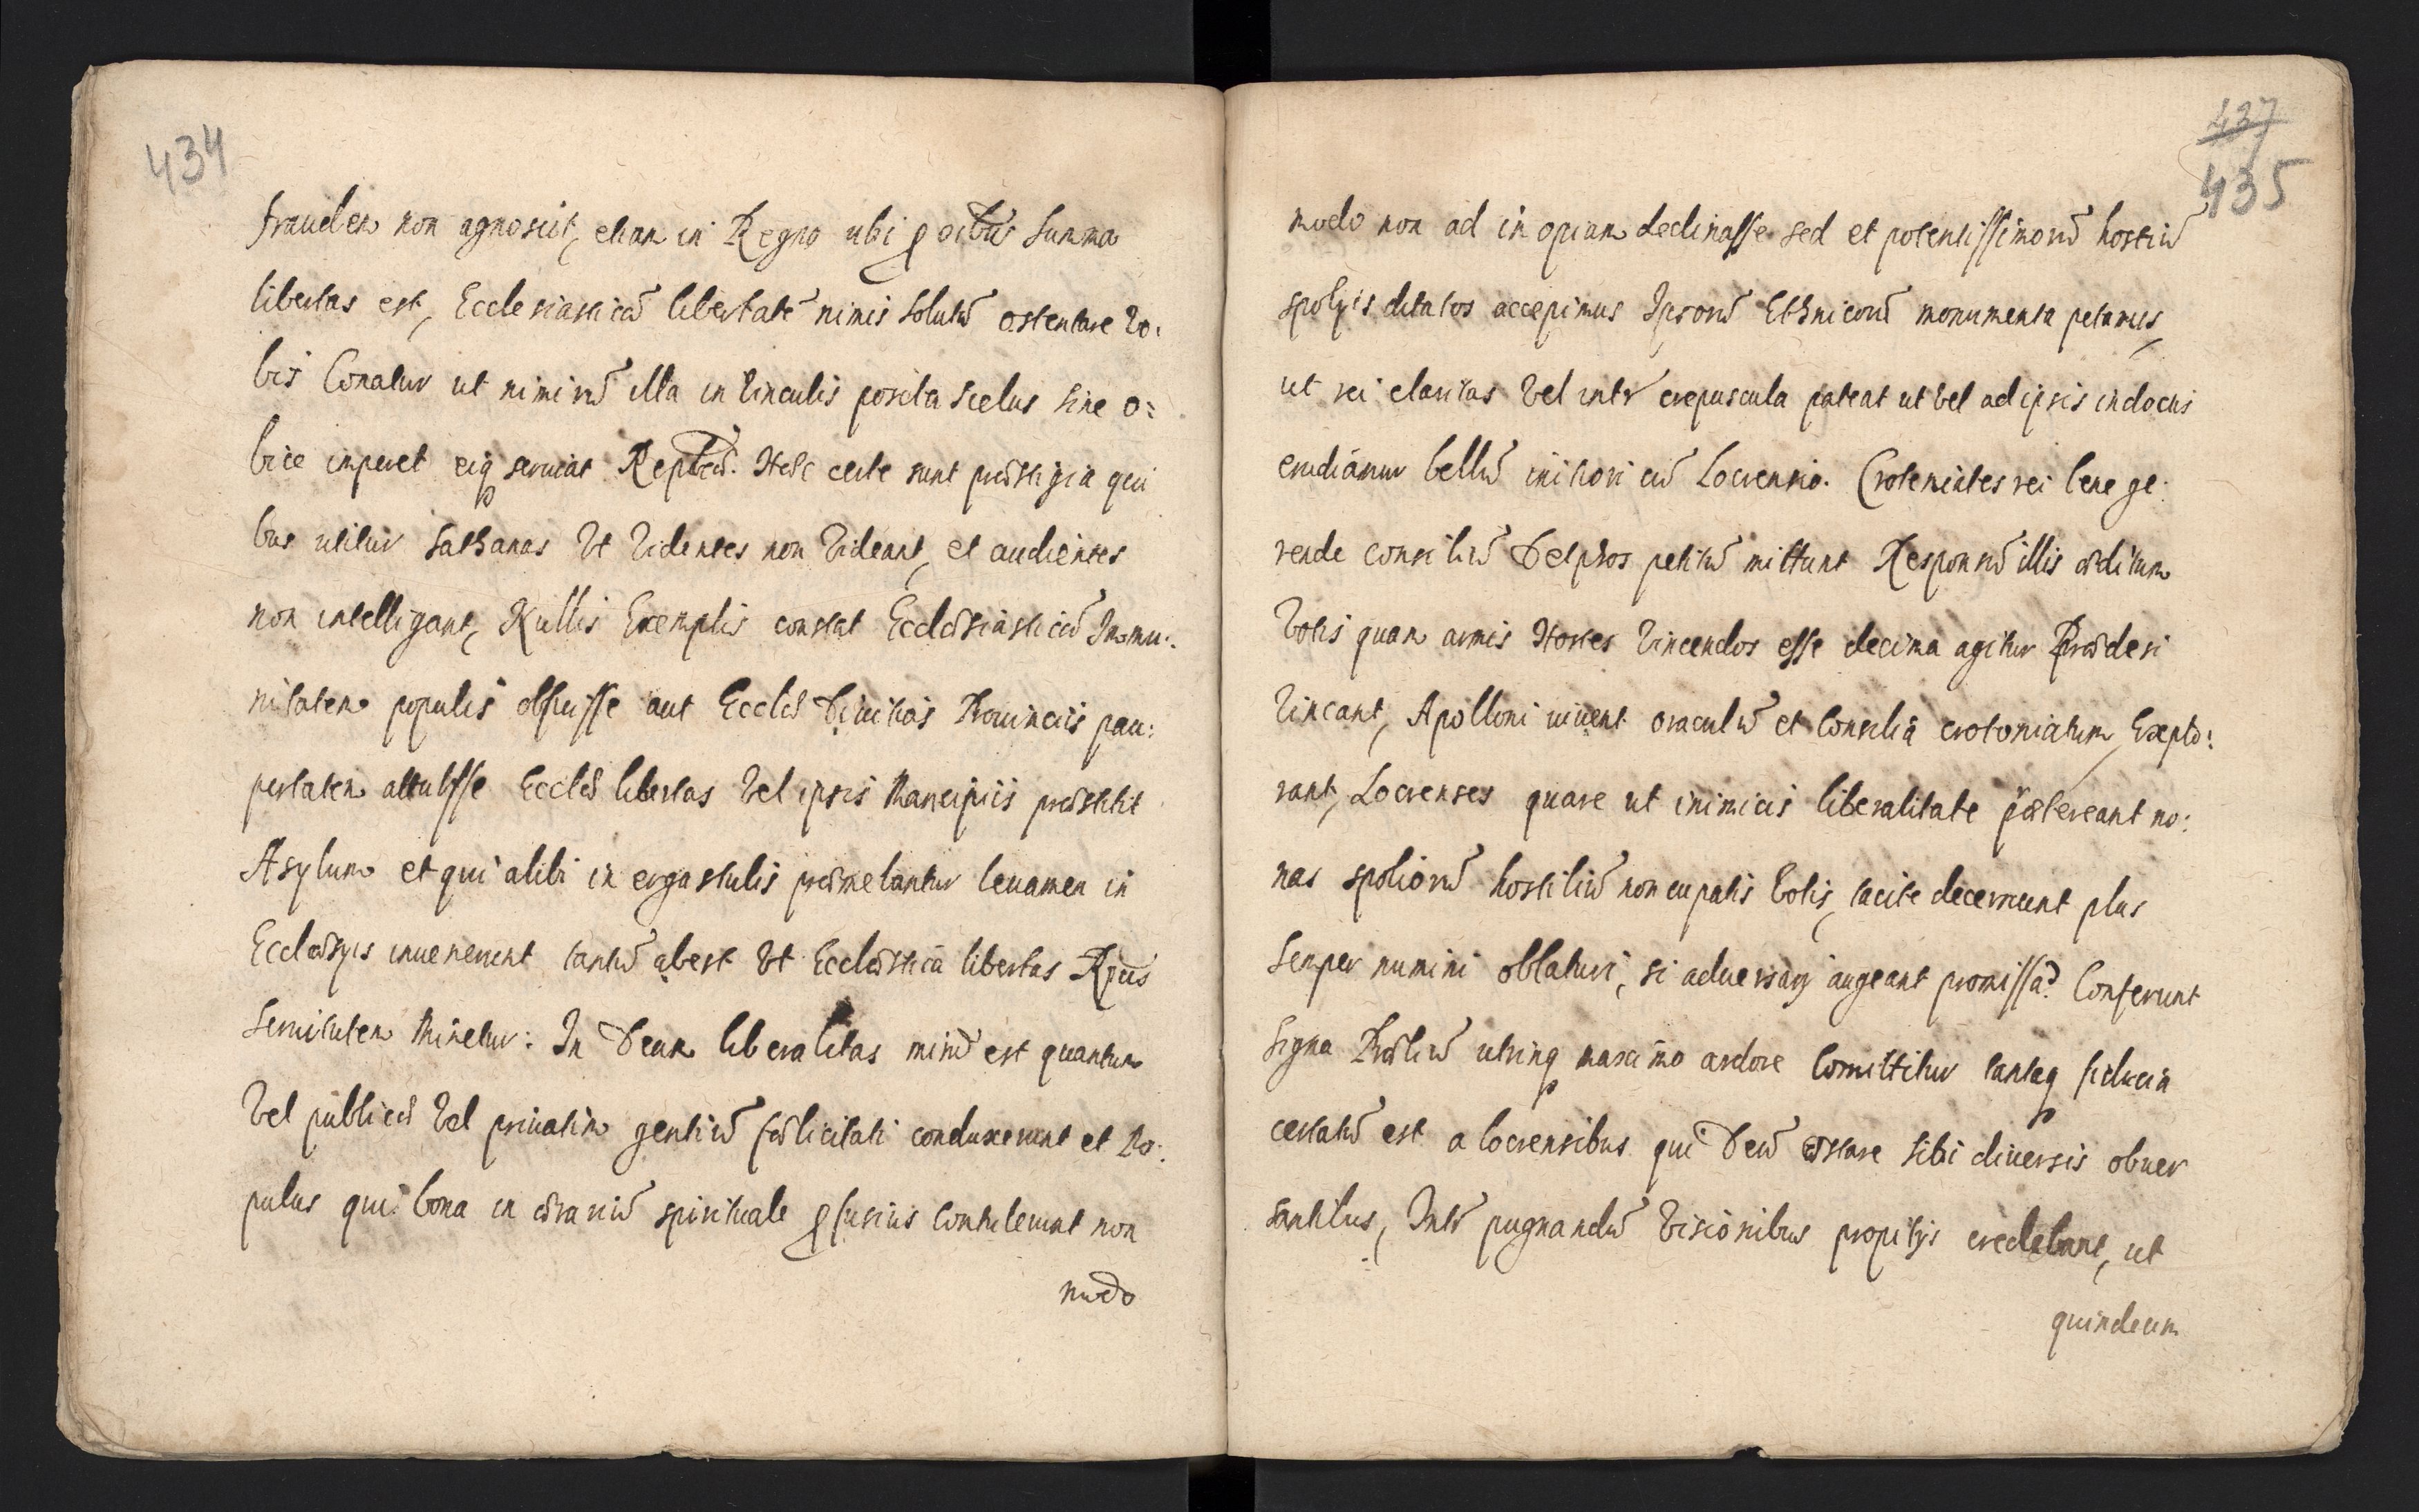 434
fraudem non agnoscit, etiam in Regno ubi ꝑ oībus summa
libertas est, Ecclesiasticā libertatē nimis solutū ostentare vo:
bis Conatur ut nimirū illa in vinculis posita scelus sine o:
bice imperet eiq serviat Replicæ. Hæc certe sunt præstigia qui
bus utitur Sathanas Vt Videntes non Videant, et audientes
non intelligant, Nullis Exemplis constat Ecclæsiasticā Immu:
nitatem populis obfuisse aut Ecclæ Divitias Provinciis pau:
pertatem attulisse Ecclæ libertas Vel ipsis Mancipiis præstitit
Asylum et qui alibi in ergastulis præmebantur levamen in
Ecclæsijs invenerunt tantū abest Vt Ecclæstica libertas Rpcis
Servitutem Minetur: In Deum liberalitas mirū est quantum
Vel publicæ Vel privatim gentiū fælicitati conduxerunt et Po:
pulus qui bona in ærariū spirituale ꝑfusius Contulerunt non
modo
437
435
modo non ad inopiam declinasse sed et potentissimorū hostiū
spolijs ditatos accepimus Ipsorū Ethnicorū monumenta petamus,
ut rei claritas Vel intr crepuscula pateat ut Vel ad ipsis indocti
erudiamur bellū initori cū Locrensio. Crotoniates rei bene ge:
rende consiliū Delphos petitū mittunt Responsū illis æditum
Votis quam armis Hostes Vincendos esse decima agitur Prædesi
Vincant, Apollini vivent oraculū et Consilia crotoniatum, Explo:
rant, Locrenses quare ut inimicis liberalitate p̈ætereant no:
nas spoliorū hostiliū noncupatis Votis, tacite decernunt plus
Semper numini oblaturi, si adversarij augeant promissa? Conferunt
Signa Præliū utrinq maximo ardore Comittitur tantaq fiducia
certatū est a locrensibus qui Deū æstare sibi diversis obver
santibus, Intr pugnandū Visionibus propitijs credebant, ut
quindecim